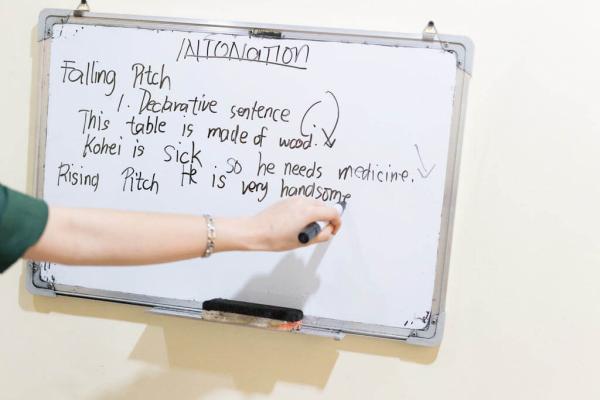 INTONATION
Falling Pitch
1. Declarative sentence
This table is made of wood.
Kohei is sick so he needs medicine.
Rising Pitch He is very handsome